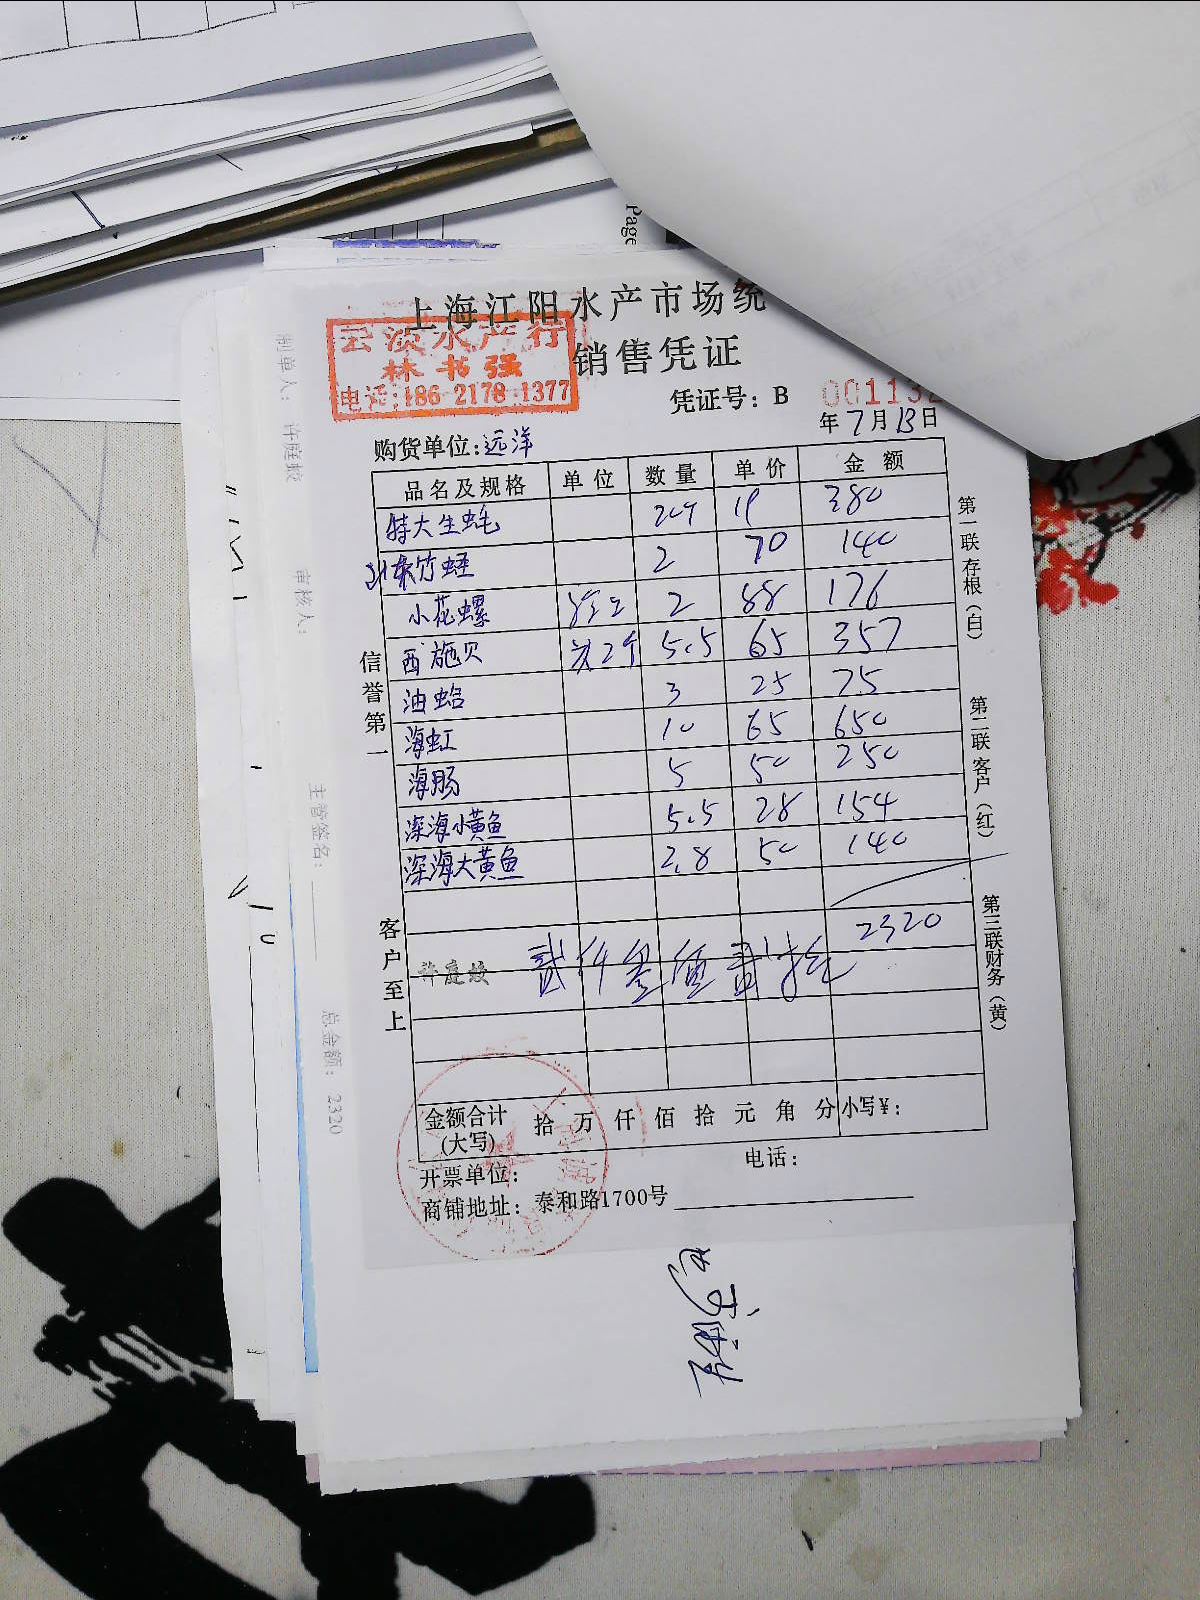 Page
上海江阳水产市场统
销售凭证
云淡水产行
林书强
电话:186 2178 1377
凭证号: B 001132
年7月13日
购货单位:远洋
品名及规格 单位 数量 单价 金额
特大生蚝 20个 19 380
竹蛏 2 70 140
小花螺 2 88 176
西施贝 5.5 65 357
油蛤 3 25 75
海虹 10 65 650
海肠 5 50 250
深海小黄鱼 5.5 28 154
深海大黄鱼 2.8 50 140
2320
许庭蛟 贰仟叁佰贰拾元
金额合计(大写) 拾 万 仟 佰 拾 元 角 分 小写¥:
开票单位: 电话:
商铺地址: 泰和路1700号
信誉第一
客户至上
第一联存根(白)
第二联客户(红)
第三联财务(黄)
制单人: 许庭蛟
审核人:
主管签名:
总金额: 2320